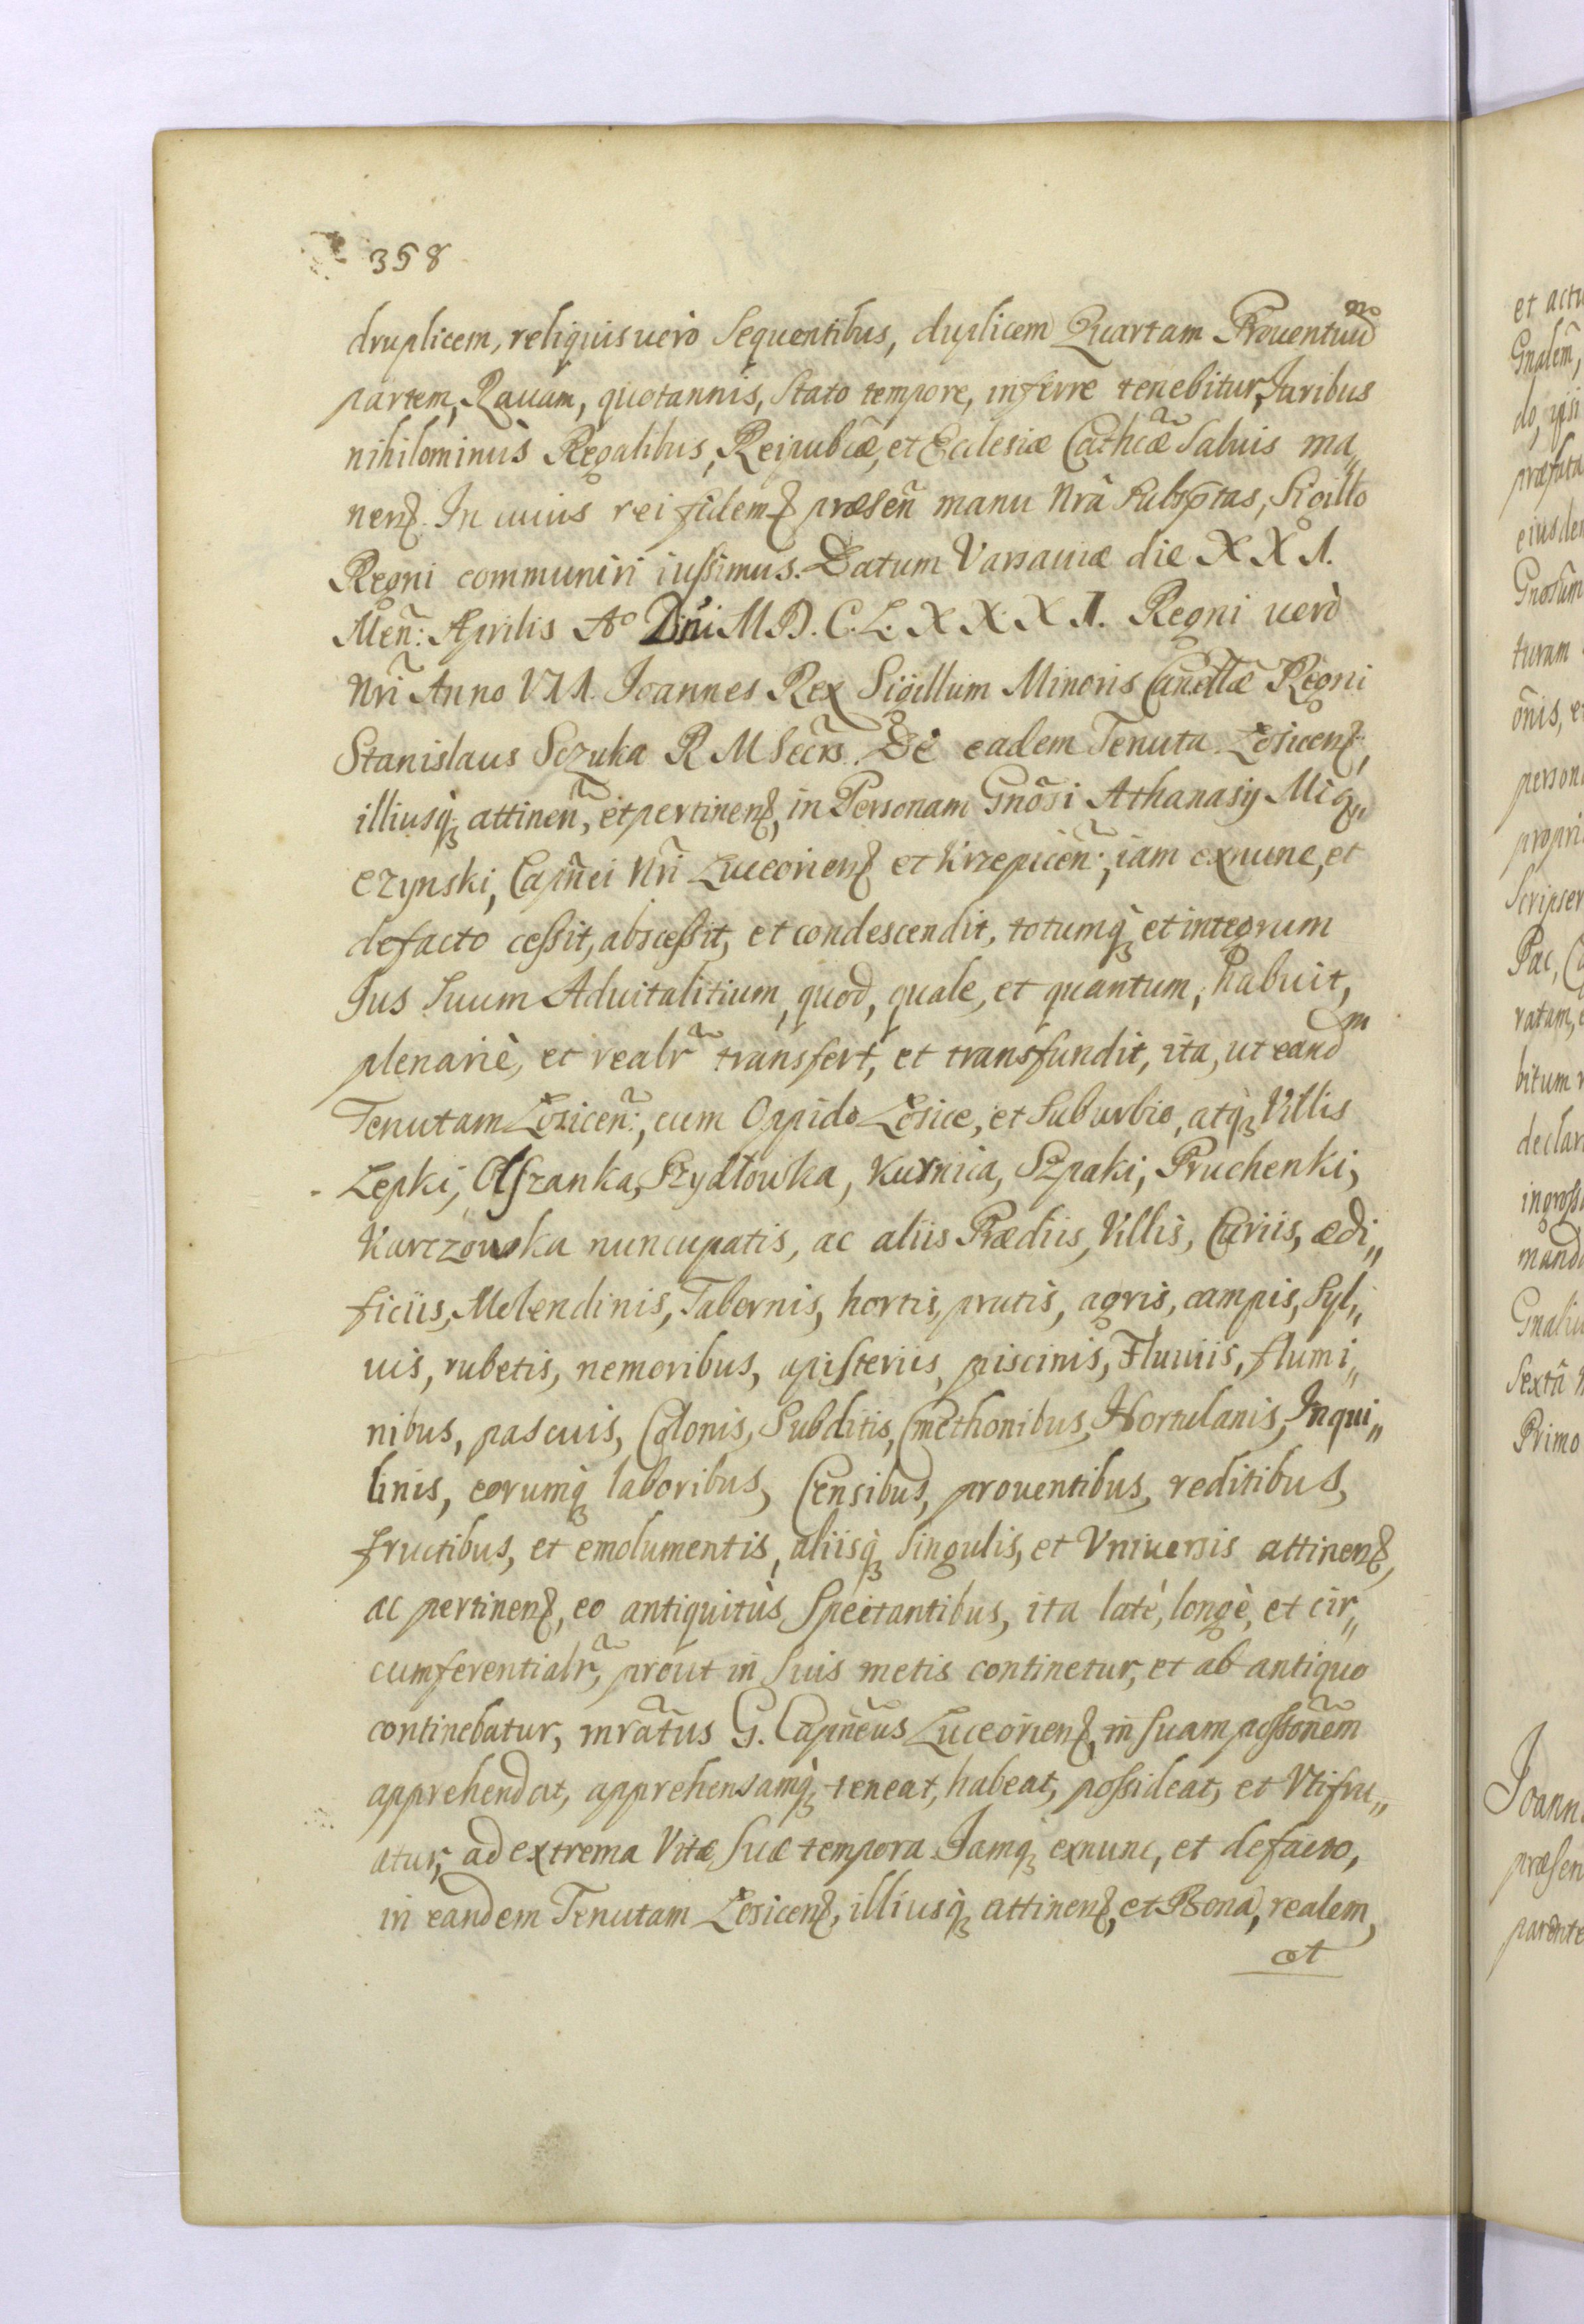 358
druplicem, reliquis uerò Sequentibus, duplicem Quartam Prouentuũ
partem, Rauam, quotannis, Stato tempore, inferre tenebitur, Juribus
nihilominùs Regalibus, Reipubcæ, et Ecclesiæ Cathcæ Saluis ma„
nenꝭ. In cuius rei fidem præsen̄ manu Nrã Subsptas, Sigillo
Regni communiri iussimus. Datum Varsauiæ die XXI.
Meñ: Aprilis Aº Dn̄i M.D.C.L.XXXI. Regni uerò
Nri Anno VII. Joannes Rex Sigillum Minoris Cancellæ Regni
Stanislaus Sczuka R M Secrs. De eadem Tenuta Łosicenꝭ,
illiusq; attinen̄, et pertinenꝭ, in Personam Gnõsi Athanasij Mią„
czynski, Capn̄ei Nri Luceorienꝭ et Krzepicen̄:, iam exnunc, et
defacto cessit, abscessit, et condescendit, totumq; et integrum
Jus Suum Aduitalitium, quod, quale, et quantum, habuit,
plenariè, et realr̃ transfert, et transfundit, ita, ut eandm
Tenutam Łosicen̄:, cum Oppido Łosice, et Suburbio, atq; Villis
Łepki, Olszanka, Szydłowka, Kurnica, Szpaki, Pruchenki,
Karczowka nuncupatis, ac aliis Prædiis, Villis, Curiis, ædi„
ficiis, Molendinis, Tabernis, hortis, pratis, agris, campis, Syl„
uis, rubetis, nemoribus, apisteriis, piscinis, Fluuiis, flumi„
nibus, pascuis, Colonis, Subditis, Cmethonibus, Hortulanis, Inqui„
linis, eorumq; laboribus, Censibus, prouentibus, reditibus,
fructibus, et emolumentis, aliisq; Singulis, et Vniuersis attinenꝭ,
ac pertinenꝭ, eo antiquitùs Spectantibus, ita latè, longè, et cir„
cumferentialr̃, prout in Suis metis continetur, et ab antiquo
continebatur, mrãtus G. Capn̄eus Luceorienꝭ, in Suam possonẽm
apprehendat, apprehensamq; teneat, habeat, possideat, et Vtifru„
atur, ad extrema Vitæ Suæ tempora. Jamq; exnunc, et defacto,
in eandem Tenutam Łosicenꝭ, illiusq; attinenꝭ, et Bona, realem,
et